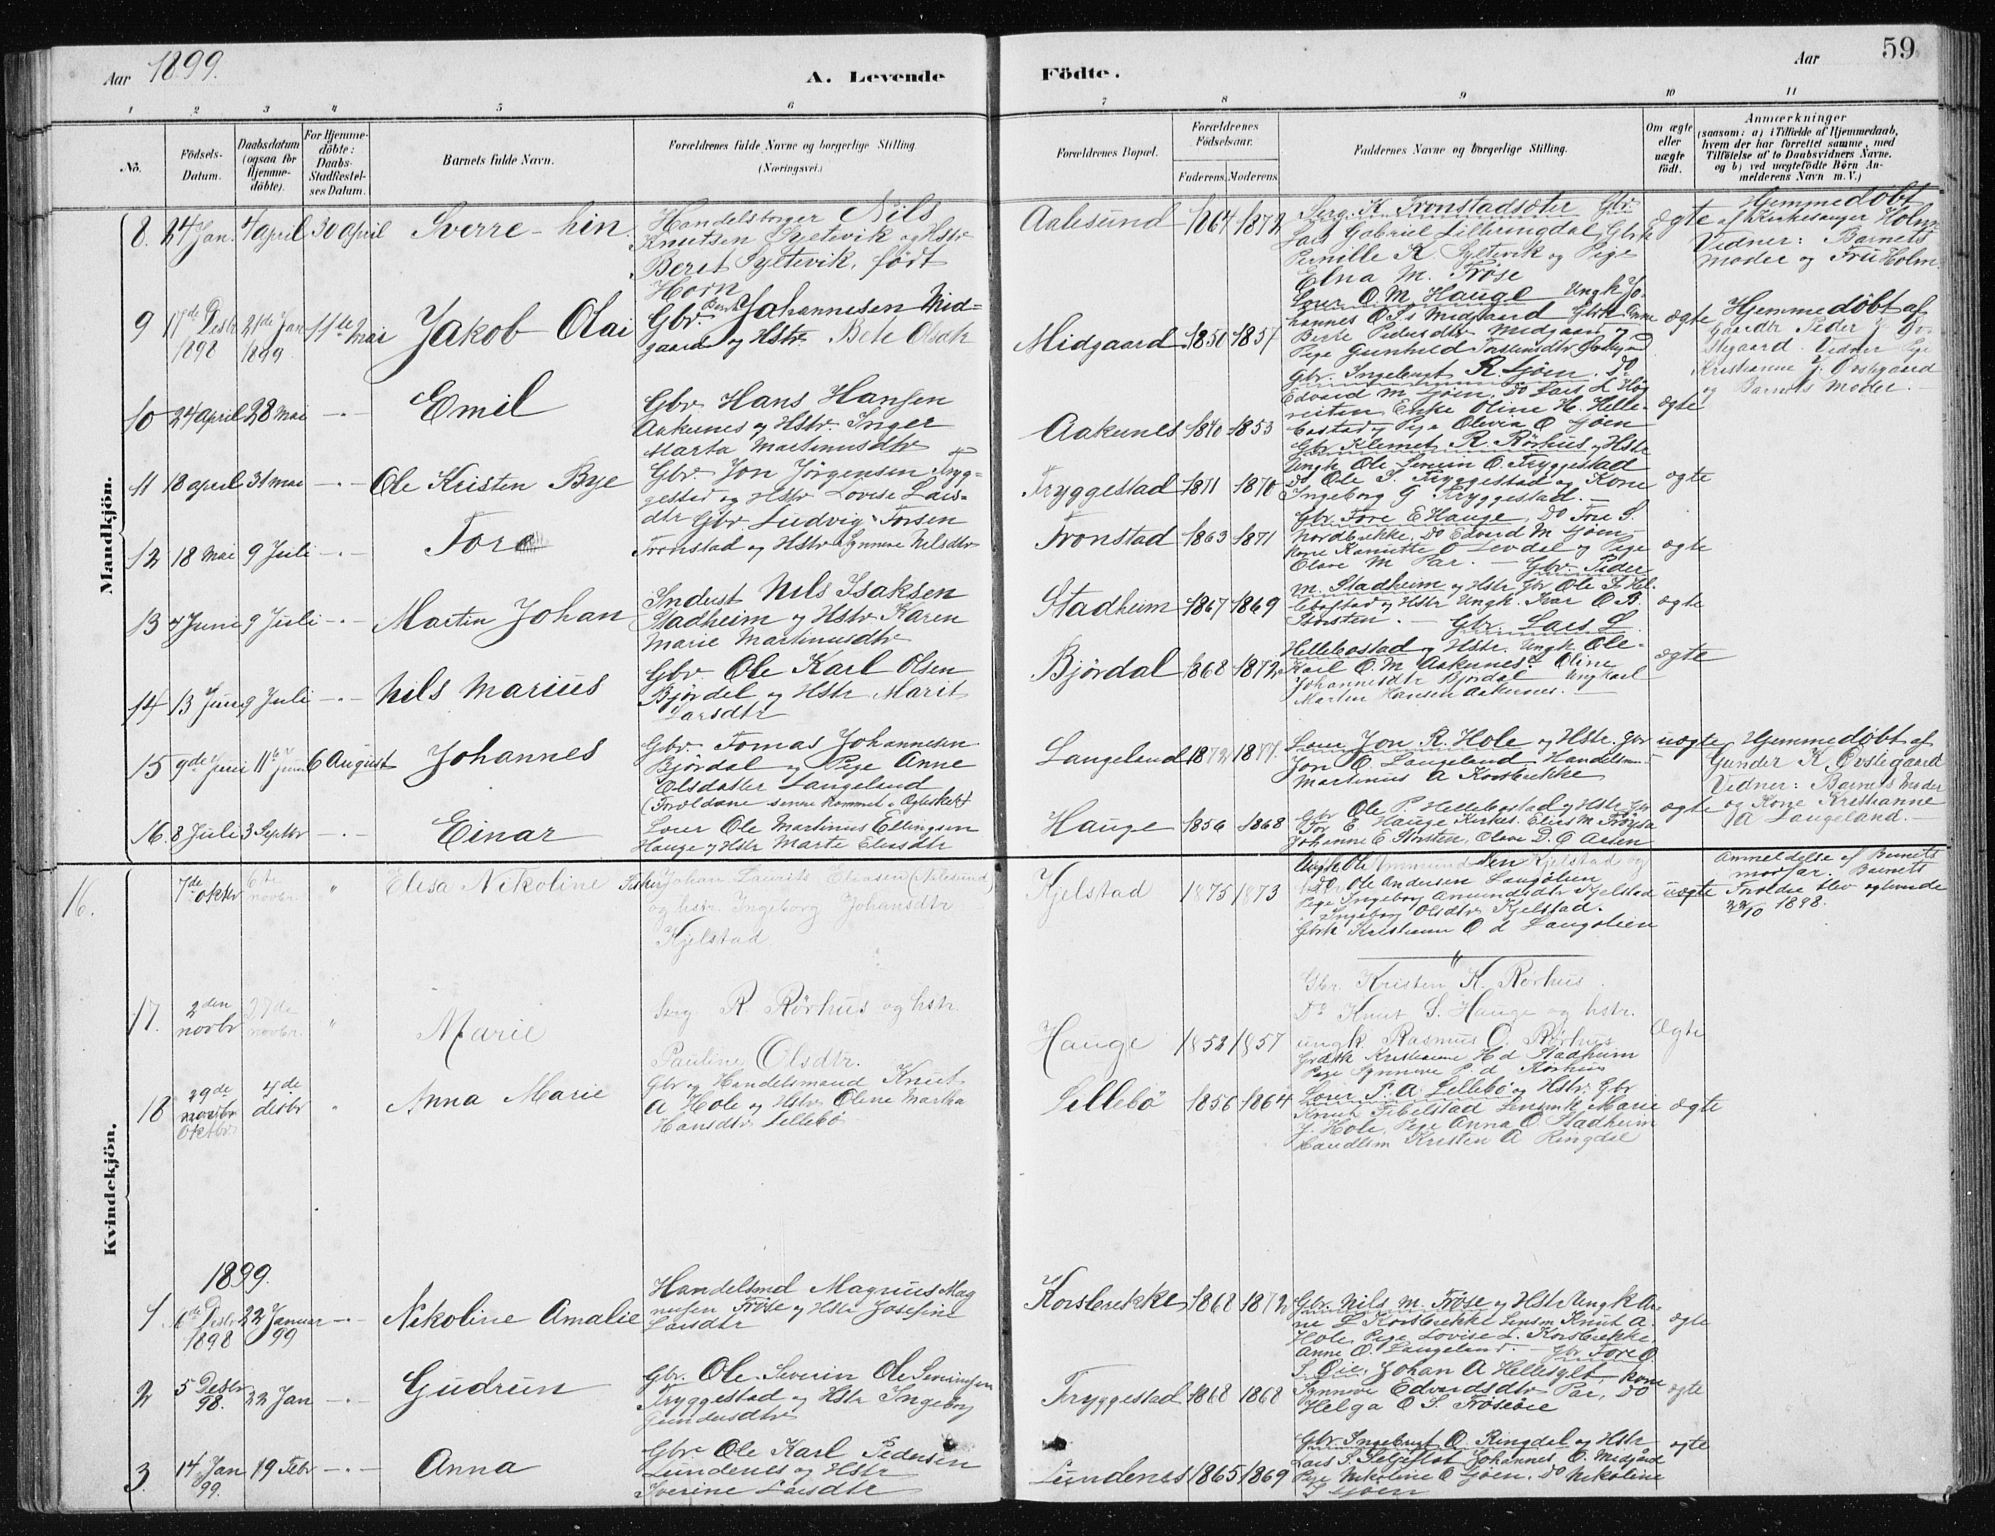 Aar 1899.
A. Levende
Födte.
Aar
59
1 2 3 4 5 6 7 8 9 10 11
No.
Födsels-
Datum.
Daabsdatum
(ogsaa for
Hjemme-
döbte).
For Hjemme-
döbte:
Daabs-
Stadfæstel-
ses Datum.
Barnets fulde Navn.
Forældrenes fulde Navne og borgerlige Stilling
(Næringsvei.)
Forældrenes Bopæl.
Forældrenes
Födselsaar.
Faderens. Moderens.
Faddernes Navne og borgerlige Stilling.
Om ægte
eller
uægte
födt.
Anmærkninger
(saasom: a) i Tilfælde af Hjemmedaab,
hvem der har forrettet samme, med
Tilföielse af to Daabsvidners Navne,
og b) ved uægtefödte Börn An-
melderens Navn m. V.)
Mandkjön.
8. 24 Jan. 4 april 30 april Sverre
Handelsborger Nils
Knutsen Syltevik og Hstr
Beret Syltevik, født
Horn
Aalesund 1864 1872
Elna M. Frøse
ægte
Hjemmedøbt
af Kirkesanger Holm
Vidner: Barnets
Moder og Fru Holm.
9 17de Desbr 1898 21de Jan 1899 11te Mai Jakob Olai
Gbr. Johannesen Mid-
gaard og Hstr.
Midgaard 1850 1857
Loier O. M. Hauge Ungk Jo-
hannes
ægte
Hjemmedøbt af
Gaardbr Peder
Vidner
Kristianne J. Østegaard
og Barnets Moder.
10 24 april 28 Mai -"- Emil
Gbr Hans Hansen
Aakernes og Hstr. Inger
Marta Martinusdtr
Aakernes 1853
Gbr. Ingebrigt R. Gjøen. Do
Edvard M. Gjøen, Do Lars
Enke Oline H. Helle-
bostad og Pige Olivia O Gjøen
ægte
11 18 april 31 Mai -"- Ole Kristen Bye
Gbr. Jon Jørgensen Tryg-
gestad og Hstr Lovise Lars-
dtr
Tryggestad 1871 1870
Gbr. Klemet R. Rørhus og Hstr
Ungk Ole Severin O. Tryggestad
Do Ole S. Tryggestad og Kone
Ingeborg G Tryggestad. -
ægte
12 18 Mai 9 Juli -"- Tore
Gbr Ludvig Torsen
Tronstad og Hstr Synneve Nilsdtr
Tronstad 1863 1871
Gbr. Tore E Hauge, Do Tore S.
Nordbrekke, Do Edvard M Gjøen
ægte
13 4 Juni 9 Juli -"- Martin Johan
Indust Nils Isaksen
Stadheim og Hstr Karen
Marie Martinusdtr
Stadheim 1867 1869
Gbr. Peder
M. Stadheim og Hstr Gbr Ole
og Hstr Ungk. Ivar O B.
Storsten. -
ægte
14 13 Juni 9 Juli -"- Nils Marius
Gbr. Ole Karl Olsen
Bjørdal og Hstr Marit
Larsdtr
Bjørdal 1868 1872
Gbr. Lars L.
Hellebostad og Hstr. Ungk Ole-
Karl O. M Aakernes. Oline
Johannesdtr Bjørdal Ungkarl
Marten Hansen Aakernes. -
ægte
15 9de Juni 11te Juni 6 August Johannes
Gbr. Tomas Johannesen
Bjørdal og Pige Anne
Olsdatter Langeland
(Forældrene senere kommet i Ægteskab)
Langeland 1872 1877.
Loier Jon R. Hole og Hstr. Gbr
Jon O Langeland. Handelsm
Martinus A Korsbrekke
uægte
Hjemmedøbt af
Gunder K. Østegaard
Vidner: Barnets Moder
og Kone Kristianne
A Langeland. -
16. 8 Juli 3 Septbr -"- Einar
Loier Ole Martinus Ellingsen
Hauge og Hstr Marte Eliasdtr
Hauge 1856 1868
Gbr Ole P. Hellebostad og Hstr
Tor E Hauge Kirkes. Elias M Frøysa
Johanne E Storsten, Olave D. O Aasen
ægte
Kvindekjön.
16. 7de oktbr 6te novbr. " Elisa Nikoline
Fisker Johan Laurits Eliasen (Aalesund)
og hstr. Ingeborg Johansdtr
Kjelstad
Kjelstad 1875 1873
Ungk Ole Kjelstad og
Do Ole Andersen Langølien
Pige Ingeborg Amundsdtr Kjelstad
Ingeborg Olsdtr Kjelstad.
Gbrk Kristianne O d Langølien
uægte
Anmeldelse af Barnets
morfar. Barnets
Forældre blev egteviede
22/10 1898.
17. 2den novbr 27de novbr. " Marie
R. Rørhus og hstr.
Pauline Olsdtr.
Hauge 1852 1857
Gbr. Kristen K. Rørhus.
Do Knut S. Hauge og hstr.
ungk. Rasmus O. Rørhus
Grdbrk Kristianne H d Stadheim
Pige Synneve P. d Rørhus
Ægte
18 29de novbr Oktbr 4de desbr " Anna Marie
Gbr og Handelsmand Knut
A Hole og Hstr Oline Martha
Hansdtr Lillebø
Lillebø 1856 1864
Loier P. A. Lillebø og Hstr. Gbr
Knut Fibelstad Marie
J. Hole, Pige Anna O Stadheim
Handlsm Kristen A Ringdal
ægte
1899.
1 6de Desbr 1898 22 Januar 99 -"- Nikoline Amalie
Handelsmd Magnus Mag-
nusen Frøse og Hstr Josefine
Larsdtr
Korsbrekke 1868 1872
Gbr. Nils M. Frøse og Hstr Ungk Ar-
ne L Korsbrekke Lensm Knut A.
Hole, Pige Lovise L. Korsbrekke.
Anne O. Langeland. -
ægte
2 5 Desbr 98. 22 Jan -"- Gudrun
Gbr. Ole Severin Ole Severinsen
Tryggestad og Hstr Ingeborg
Gundersdtr
Tryggestad 1868 1868
Gbr Tore O.
S. Øie, Johan A Hellesylt Kone
Synneve Edvardsdtr Par, Do
Helga O S. Frøsøie
ægte
3 14 Jan 99. 19 Febr -"- Anna
Gbr Ole Karl Pedersen
Lundenes og Hstr
Iverine Larsdtr
Lundenes 1865 1869
Gbr Ingebrigt O. Ringdal og Hstr
Lars S. Johannes O. Midgård
Pige Nikoline O Gjøen, Do Nikoline
Gjøen
ægte